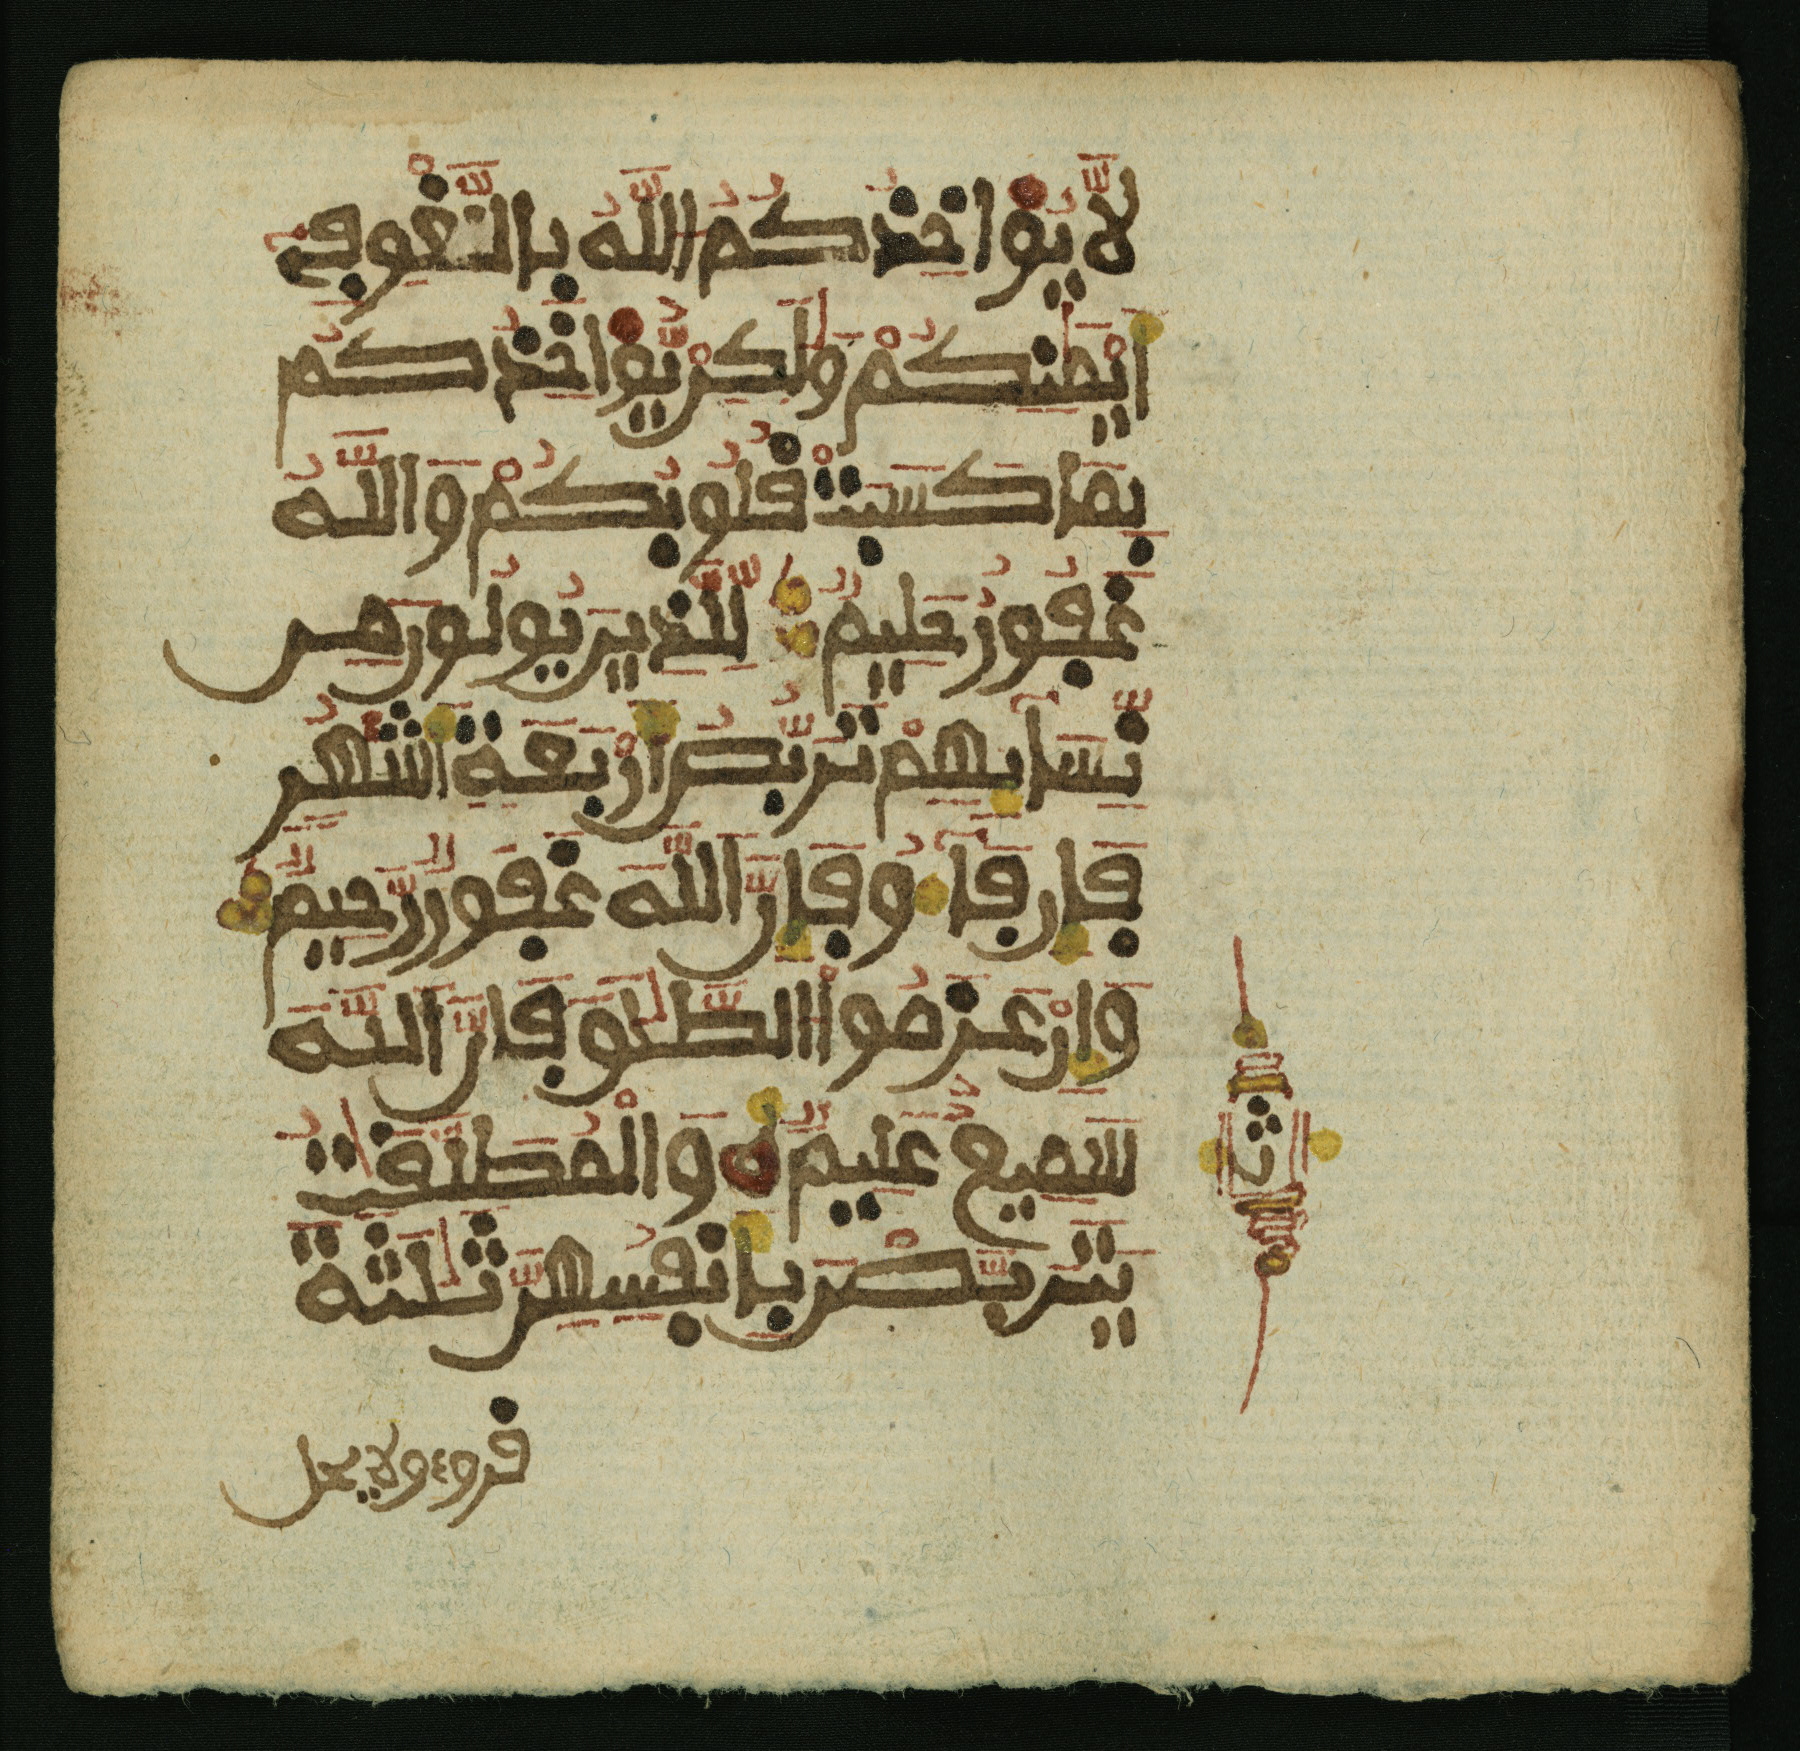 لَا يُؤَاخِذُكُمُ اللَّهُ بِاللَّغْوِ فِے
أَيْمَٰنِكُمْ وَلَٰكِنْ يُّؤَاخِذُكُم
بِمَا كَسَبَتْ قُلُوبُكُمْ وَاللَّهُ
غَفُورٌ حَلِيمٌ لِّلَّذِينَ يُولُونَ مِن
نِّسَآئِهِمْ تَرَبُّصُ أَرْبَعَةِ أَشْهُرٍ
فَإِن فَآءُو فَإِنَّ اللَّهَ غَفُورٌ رَّحِيمٌ
وَإِنْ عَزَمُوا الطَّلَٰقَ فَإِنَّ اللَّهَ
سَمِيعٌ عَلِيمٌ وَالْمُطَلَّقَٰتُ
يَتَرَبَّصْنَ بِأَنفُسِهِنَّ ثَلَٰثَةَ
ث
قروء ولا يحل